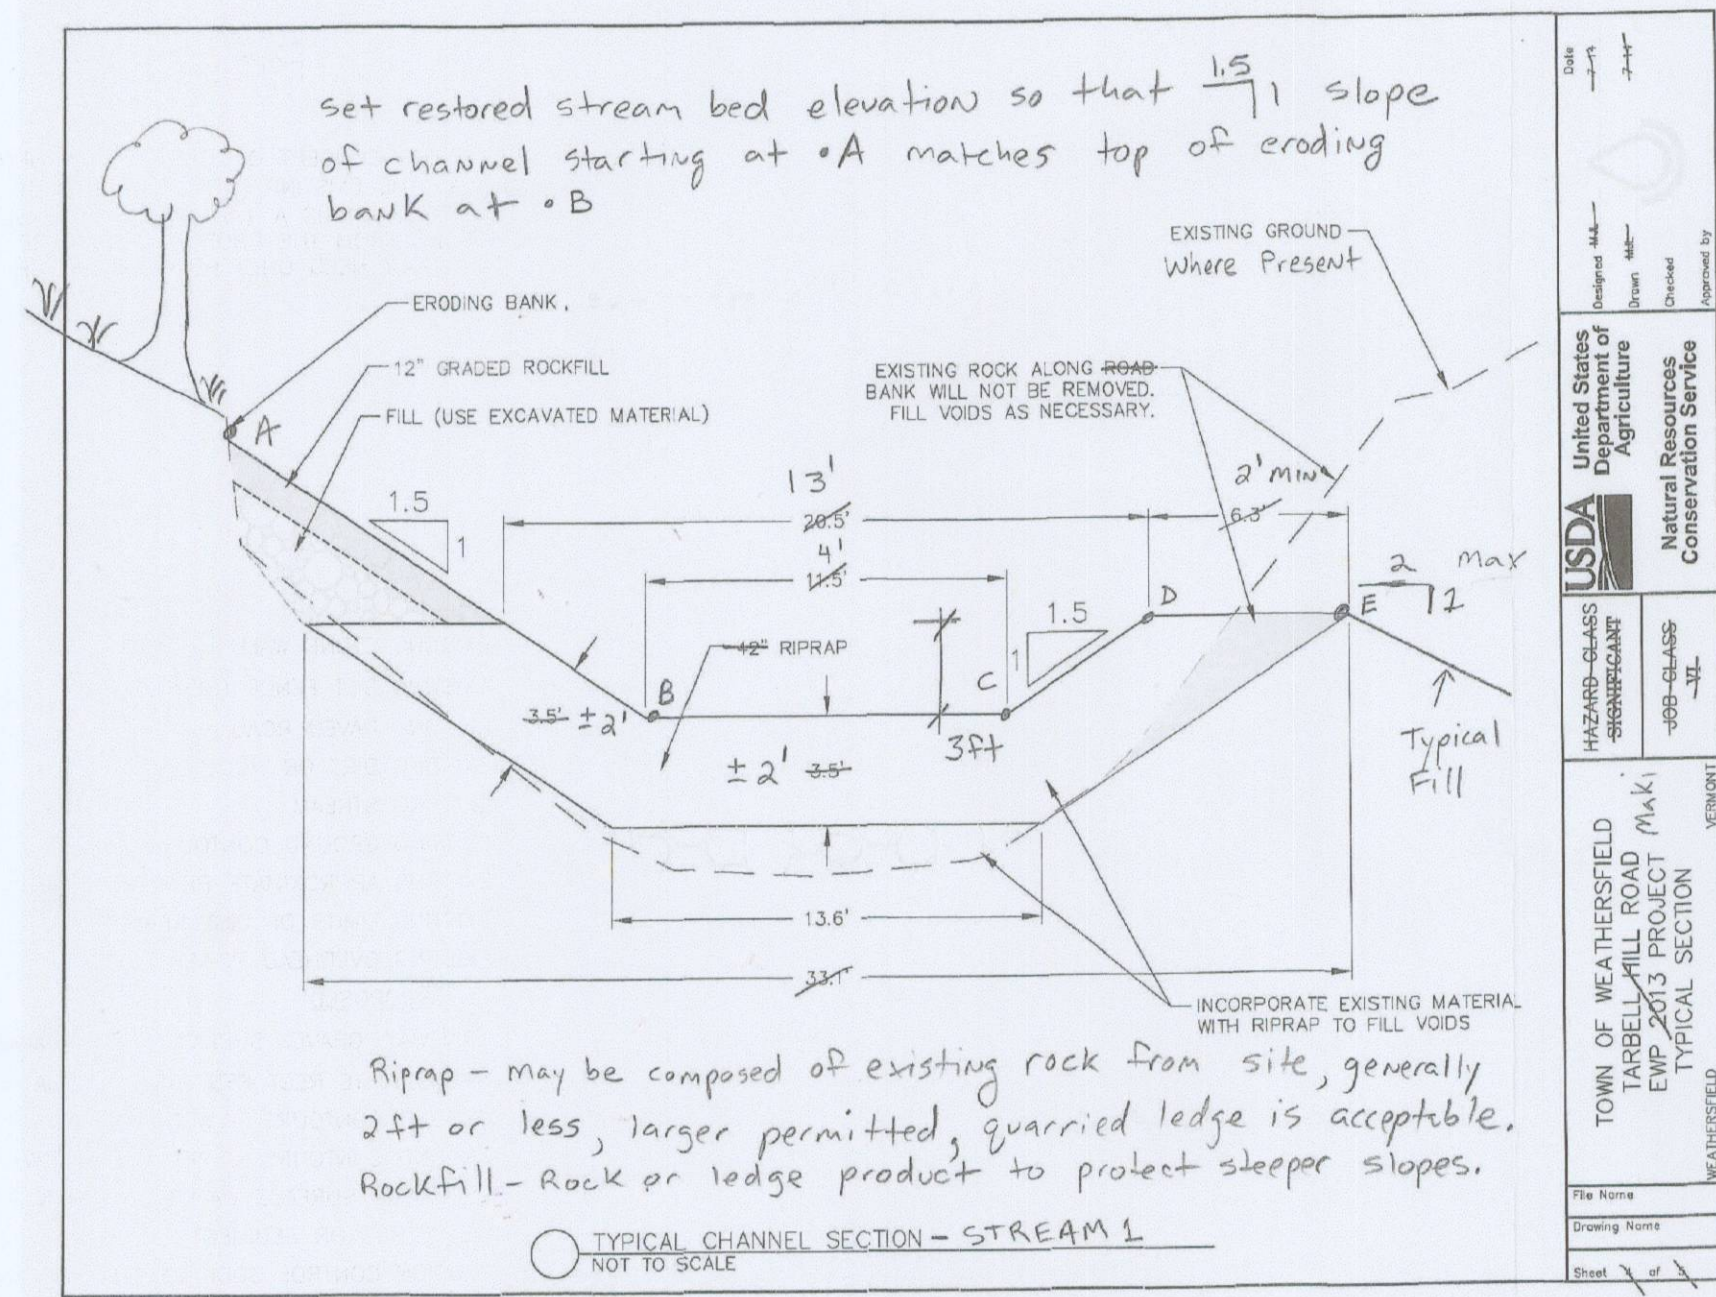 set restored stream bed elevation so that 1.5 1 slope
of channel starting at •A matches top of eroding
bank at •B
EXISTING GROUND
Where Present
ERODING BANK.
12" GRADED ROCKFILL
FILL (USE EXCAVATED MATERIAL)
EXISTING ROCK ALONG ROAD
BANK WILL NOT BE REMOVED.
FILL VOIDS AS NECESSARY.
A
1.5
1
13'
20.5'
4'
11.5'
2' MIN
6.3'
2 Max
1
E
D
1.5
1
C
B
12" RIPRAP
3.5' ±2'
±2' 3.5'
3ft
Typical
Fill
13.6'
33.1'
INCORPORATE EXISTING MATERIAL
WITH RIPRAP TO FILL VOIDS
Riprap - may be composed of existing rock from site, generally
2ft or less, larger permitted, quarried ledge is acceptable.
Rockfill - Rock or ledge product to protect steeper slopes.
TYPICAL CHANNEL SECTION - STREAM 1
NOT TO SCALE
Date
Designed
Drawn
Checked
Approved by
USDA
United States
Department of
Agriculture
Natural Resources
Conservation Service
HAZARD CLASS
SIGNIFICANT
JOB CLASS
VI
TOWN OF WEATHERSFIELD
TARBELL HILL ROAD
EWP 2013 PROJECT Maki
TYPICAL SECTION
WEATHERSFIELD VERMONT
File Name
Drawing Name
Sheet 4 of 5